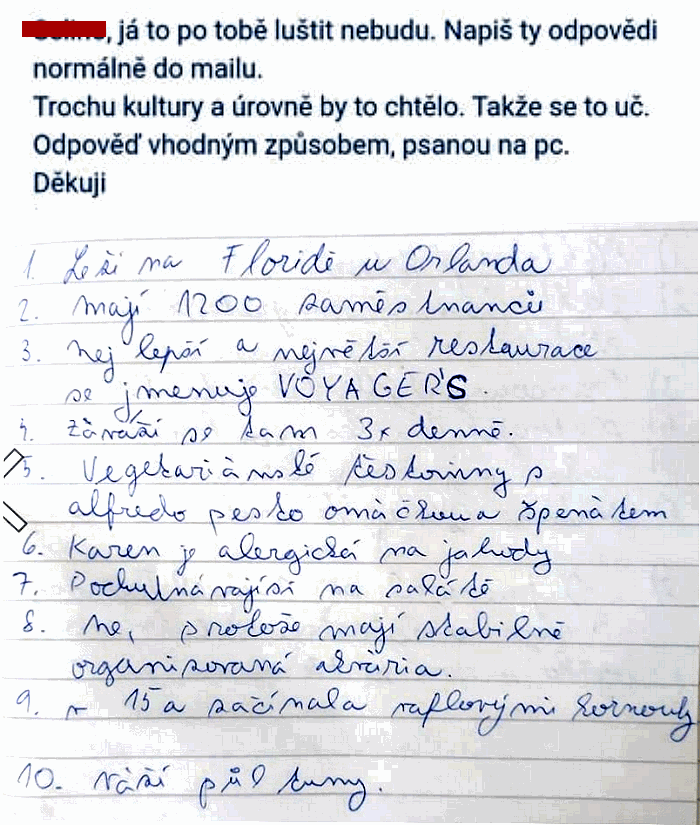 , já to po tobě luštit nebudu. Napiš ty odpovědi
normálně do mailu.
Trochu kultury a úrovně by to chtělo. Takže se to uč.
Odpověď vhodným způsobem, psanou na pc.
Děkuji
1. Leží na Floridě u Orlanda
2. mají 1200 zaměstnanců
3. nej lepší a největší restaurace
se jmenuje VOYAGER'S.
4. zaváží se tam 3x denně.
5. Vegetariánské těstoviny s
alfredo pesto omáčkou a špenátem
6. Karen je alergická na jahody
7. Pochutnávají si na salátě
8. ne, protože mají stabilně
organizovaná akvária.
9. v 15 a začínala vaflovými kornouty
10. váží půl tuny.